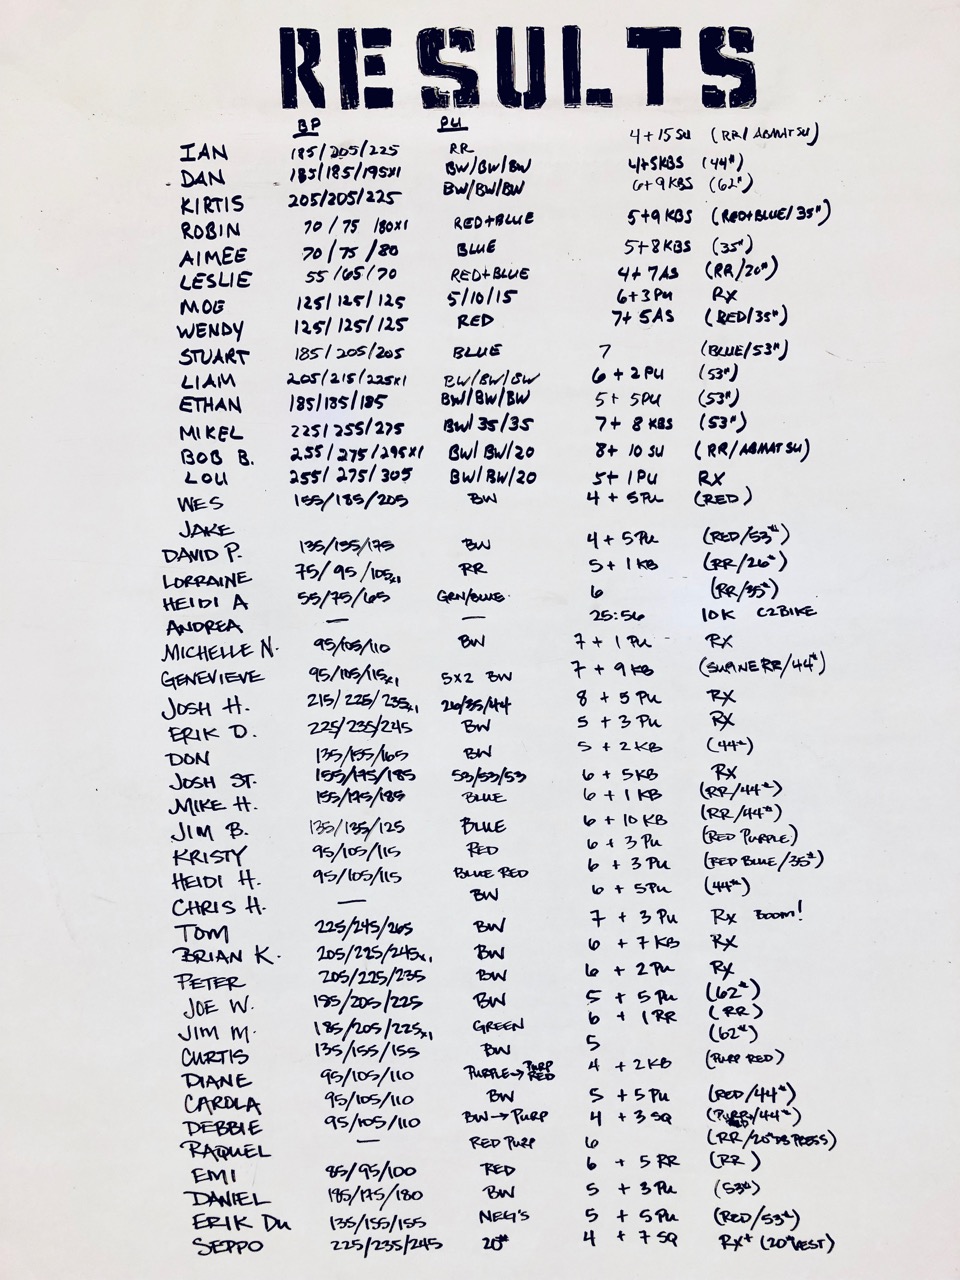 RESULTS
BP PU
IAN 185/205/225 RR 4+15 SU (RR/ABMAT SU)
DAN 185/185/195x1 BW/BW/BW 4+5KBS (44#)
KIRTIS 205/205/225 BW/BW/BW 6+9 KBS (62#)
ROBIN 70 / 75 /80x1 RED+BLUE 5+9 KBS (RED+BLUE/35#)
AIMEE 70 / 75 / 80 BLUE 5+8 KBS (35#)
LESLIE 55 /65/70 RED+BLUE 4+7AS (RR/20#)
MOE 125/125/125 5/10/15 6+3 PU RX
WENDY 125/125/125 RED 7+5AS (RED/35#)
STUART 185/205/205 BLUE 7 (BLUE/53#)
LIAM 205/215/225x1 BW/BW/BW 6 + 2 PU (53#)
ETHAN 185/185/185 BW/BW/BW 5 + 5PU (53#)
MIKEL 225/255/275 BW/35/35 7 + 8 KBS (53#)
BOB B. 255/275/295x1 BW/BW/20 8+ 10 SU (RR/ABMAT SU)
LOU 255/275/305 BW/BW/20 5+ 1 PU RX
WES 155/185/205 BW 4 + 5 PU (RED)
JAKE
DAVID P. 135/155/175 BW 4 + 5 PU (RED/53#)
LORRAINE 75/95/105x1 RR 5 + 1 KB (RR/26#)
HEIDI A 55/75/65 GRN/BLUE 6 (RR/35#)
ANDREA — — 25:56 10K C2BIKE
MICHELLE N. 95/105/110 BW 7 + 1 PU RX
GENEVIEVE 95/105/115x1 5x2 BW 7 + 9 KB (SUPINE RR/44#)
JOSH H. 215/225/235x1 26/35/44 8 + 5 PU RX
ERIK D. 225/235/245 BW 5 + 3 PU RX
DON 135/155/165 BW 5 + 2 KB (44#)
JOSH ST. 155/175/185 53/53/53 6 + 5KB RX
MIKE H. 155/175/185 BLUE 6 + 1 KB (RR/44#)
JIM B. 135/135/125 BLUE 6 + 10 KB (RR/44#)
KRISTY 95/105/115 RED 6 + 3 PU (RED PURPLE)
HEIDI H. 95/105/115 BLUE RED 6 + 3 PU (RED BLUE/35#)
CHRIS H. — BW 6 + 5PU (44#)
TOM 225/245/265 BW 7 + 3 PU RX BOOM!
BRIAN K. 205/225/245x1 BW 6 + 7 KB RX
PETER 205/225/235 BW 6 + 2 PU RX
JOE W. 185/205/225 BW 5 + 5 PU (62#)
JIM M. 185/205/225x1 GREEN 6 + 1 RR (RR)
CURTIS 135/155/155 BW 5 (62#)
DIANE 95/105/110 PURPLE→PURP RED 4 + 2KB (PURP RED)
CAROLA 95/105/110 BW 5 + 5 PU (RED/44#)
DEBBIE 95/105/110 BW→PURP 4 + 3 SQ (PURP/44#)
RAQUEL — RED PURP 6 (RR/20# DB PRESS)
EMI 85/95/100 RED 6 + 5 RR (RR)
DANIEL 185/175/180 BW 5 + 3 PU (53#)
ERIK DU 135/155/155 NEG'S 5 + 5 PU (RED/53#)
SEPPO 225/235/245 20# 4 + 7 SQ RX+ (20# VEST)